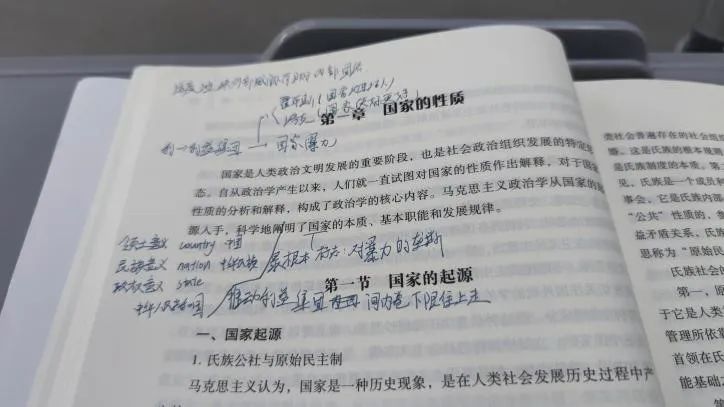 第一章 国家的性质
利一利益集团 — 国家暴力
国家是人类政治文明发展的重要阶段，也是社会政治组织发展的特定形
态。自从政治学产生以来，人们就一直试图对国家的性质作出解释，对于国
性质的分析和解释，构成了政治学的核心内容。马克思主义政治学从国家的
源入手，科学地阐明了国家的本质、基本职能和发展规律。
领土意义 country 中国
民族意义 nation 中华民族
最根本 标志：对暴力的垄断
政权意义 state
第一节 国家的起源
一、国家起源
1. 氏族公社与原始民主制
马克思主义认为，国家是一种历史现象，是在人类社会发展历史过程中产
类社会普遍存在的社会
态。这是氏族的根本规则
是氏族制度的本质。第
见，氏族是一个成员和
事会，它是氏族内部
“公共”性质的，
益矛盾关系，氏族
思称为“原始民
氏族社会
第一，原
于它是人类
管理所依靠
首领在氏
能基础